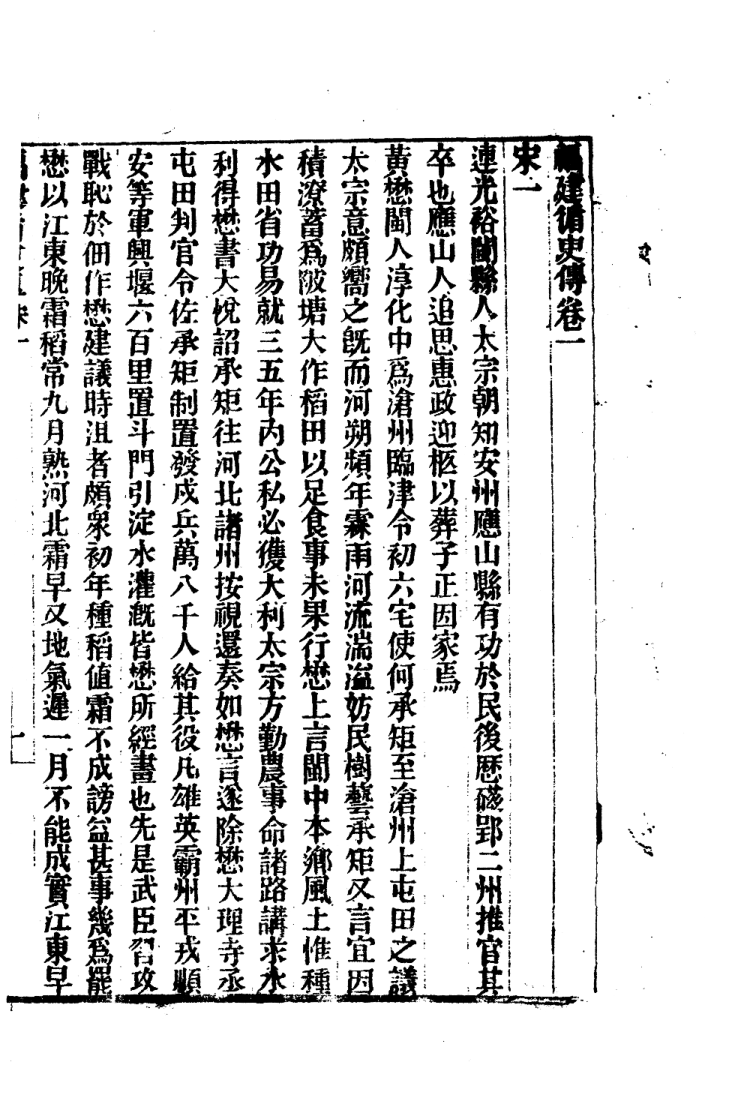 福建循吏傳卷一
宋一
連光裕閩縣人太宗朝知安州應山縣有功於民後歷磁郢二州推官其
卒也應山人追思惠政迎柩以葬子正因家焉
黃懋閩人淳化中爲滄州臨津令初六宅使何承矩至滄州上屯田之議
太宗意頗嚮之旣而河朔頻年霖雨河流湍溢妨民樹藝承矩又言宜因
積潦蓄爲陂塘大作稻田以足食事未果行懋上言閩中本鄉風土惟種
水田省功易就三五年內公私必獲大利太宗方勤農事命諸路講求水
利得懋書大悅詔承矩往河北諸州按視還奏如懋言遂除懋大理寺丞
屯田判官令佐承矩制置發戍兵萬八千人給其役凡雄英霸州平戎順
安等軍興堰六百里置斗門引淀水灌漑皆懋所經畫也先是武臣習攻
戰恥於佃作懋建議時沮者頗衆初年種稻値霜不成謗益甚事幾爲罷
懋以江東晚霜稻常九月熟河北霜早又地氣遲一月不能成實江東早
一